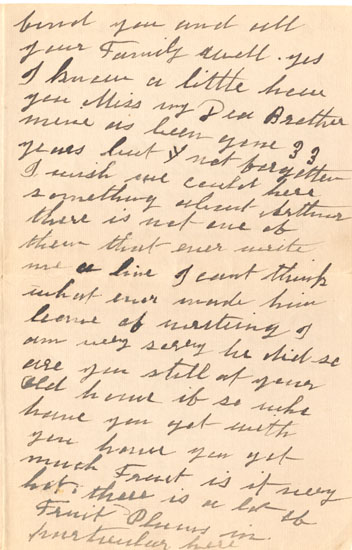 bind you and all
your Family well. yes
I know a little how
you Miss my Dea Brother
mine as been gone 33
years but not forgotten
I wish we could here
something about Arthur
there is not one of
them that ever write
me a line I cant think
what ever made him
leave of writeing I
am very sorry he did so
are you still at your
old home if so who
have you got with
you have you got
much Fruit is it very
hot. there is a lot of
Fruit Plums in
particular here